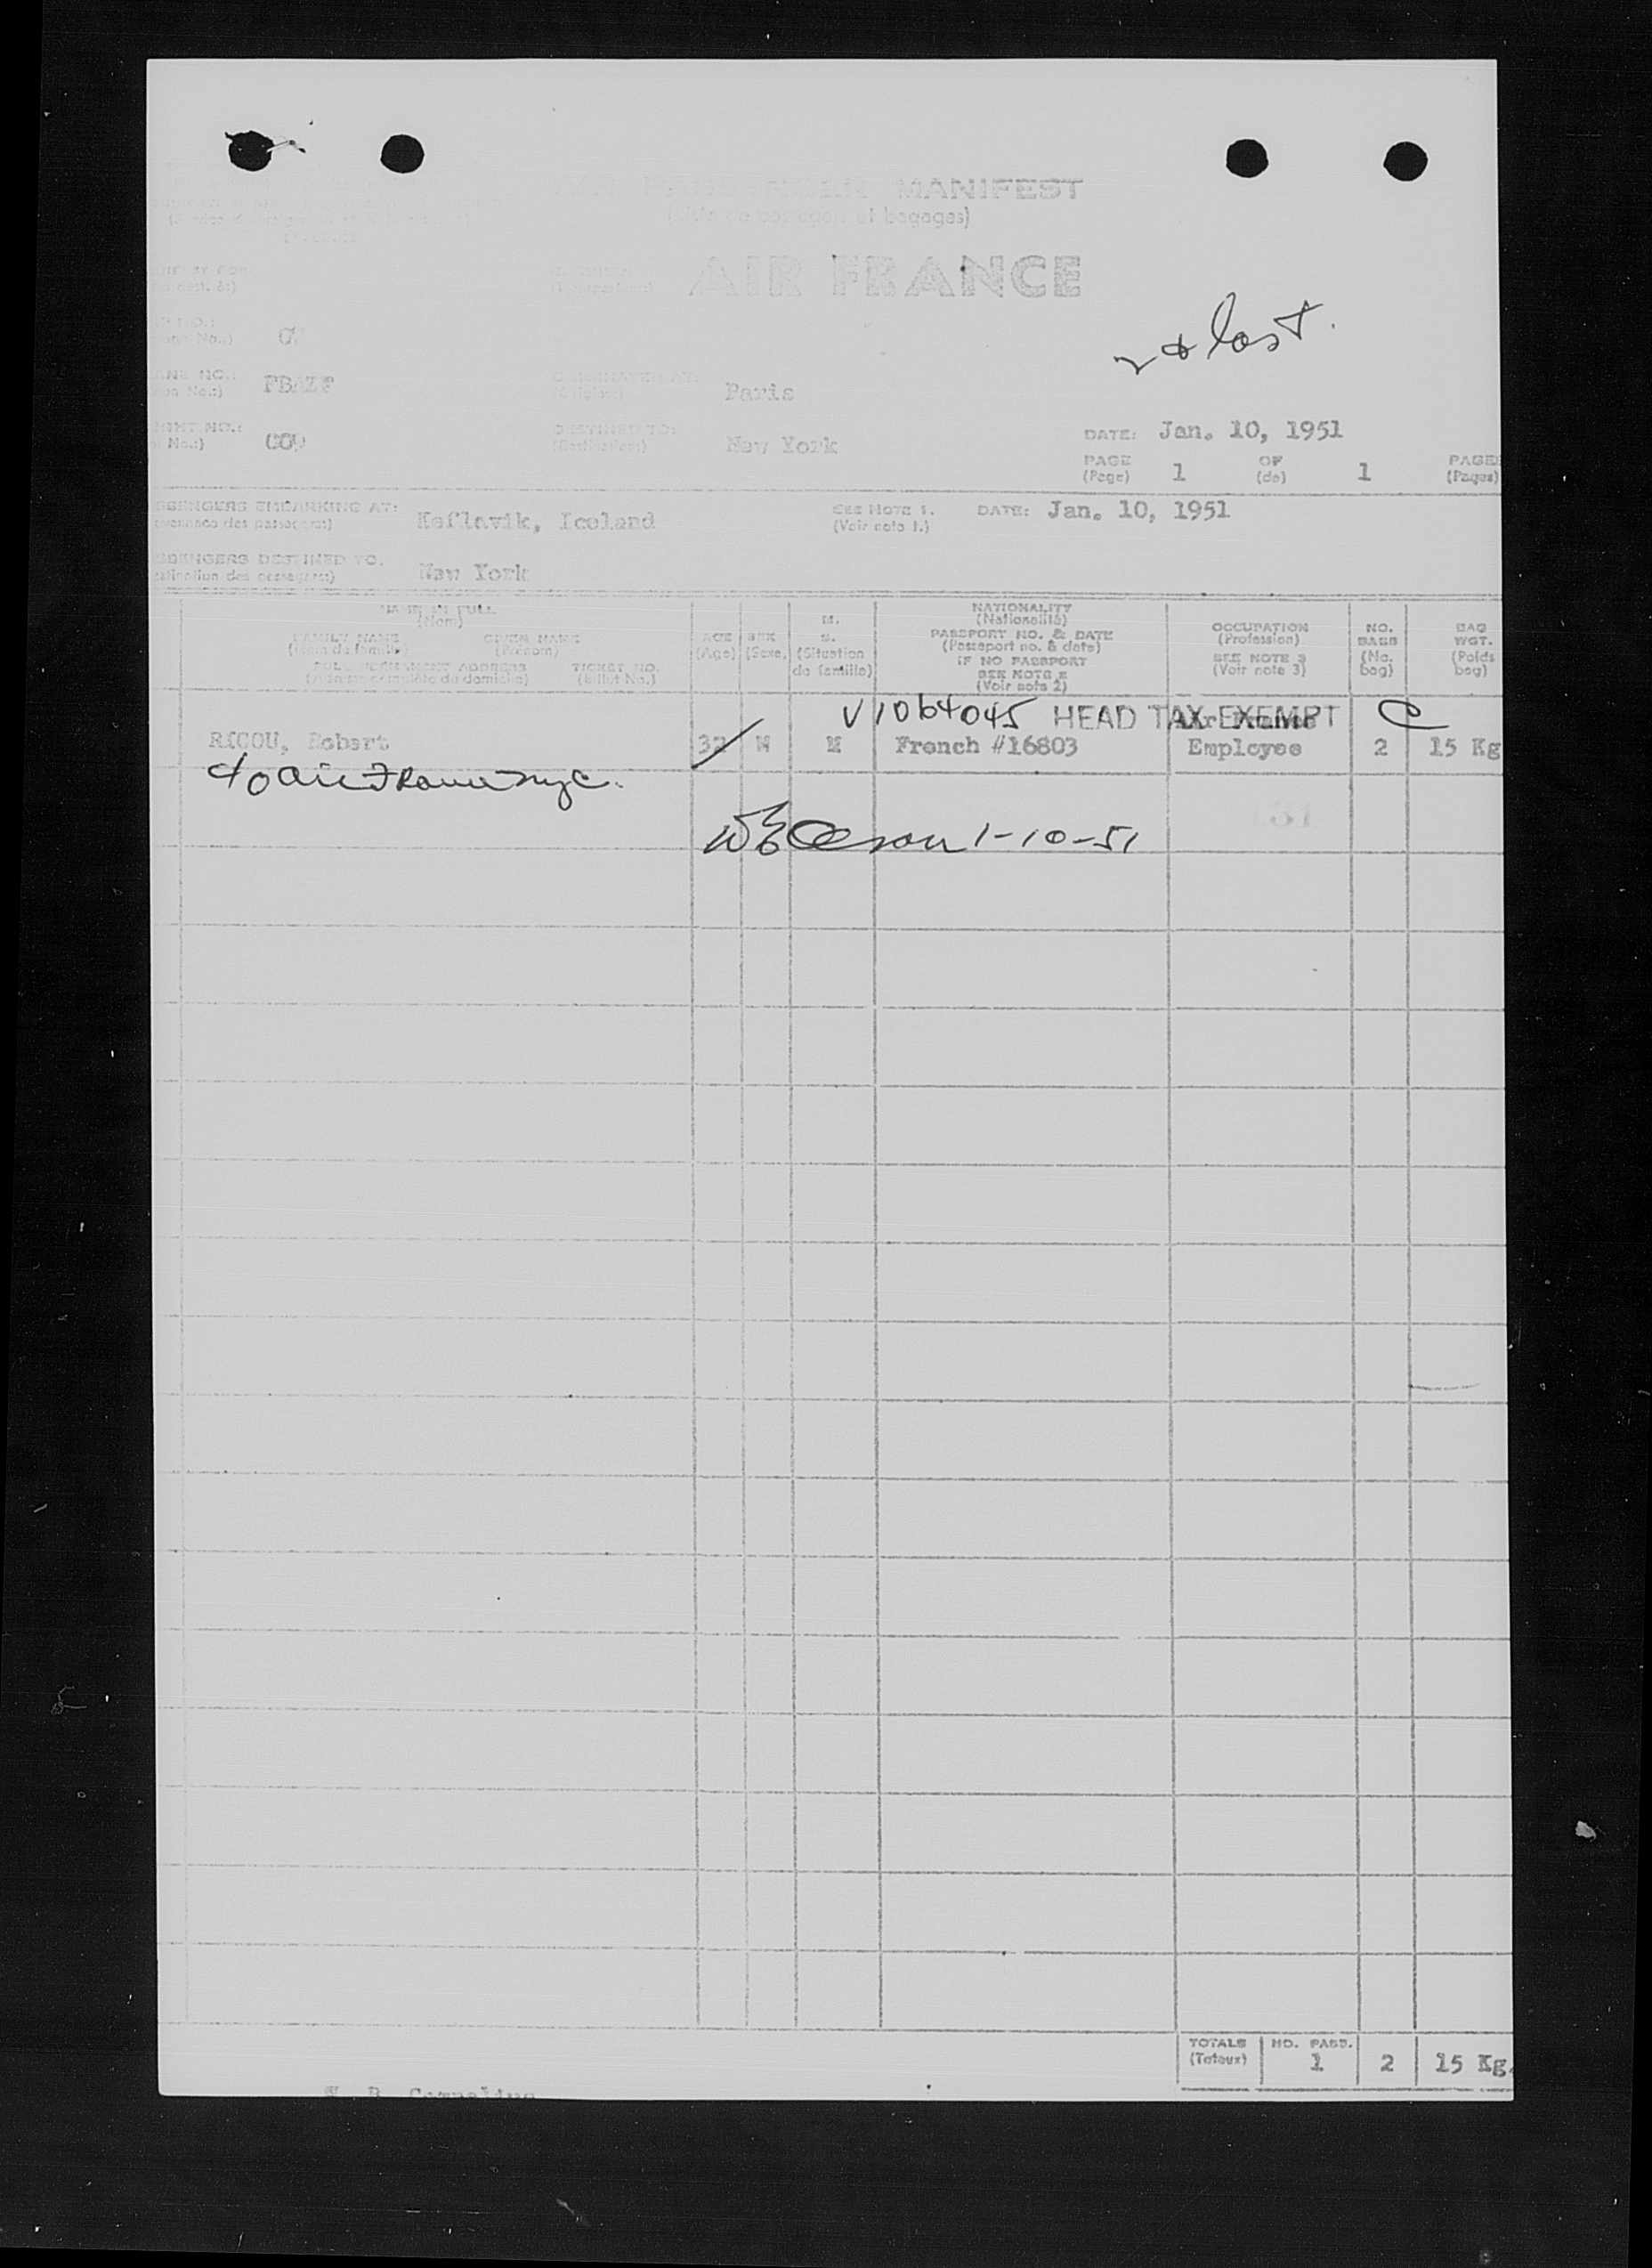 MANIFEST
et bagages)
AIR FRANCE
& last.
Paris
New York
DATE: Jan. 10, 1951
PAGE 1 OF 1 PAGE
(Page) (de) (Pages)
EMBARKING AT: Keflavik, Iceland SEE NOTE 1. DATE: Jan. 10, 1951
(Voir note 1.)
New York
NAME IN FULL
(Nom)
FAMILY NAME GIVEN NAME
(Nom de famille) (Prénom)
FULL PERMANENT ADDRESS TICKET NO.
(Adresse complète du domicile) (Billet No.)
AGE
(Age)
SEX
(Sexe)
M.
S.
(Situation
de famille)
NATIONALITY
(Nationalité)
PASSPORT NO. & DATE
(Passeport no. & date)
IF NO PASSPORT
SEE NOTE 2
(Voir note 2)
OCCUPATION
(Profession)
SEE NOTE 3
(Voir note 3)
NO.
BAGS
(No.
bag)
BAG
WGT.
(Poids
bag)
V1064045 HEAD TAX EXEMPT Air France C
RICOU, Robert 32 M M French #16803 Employee 2 15 Kg
c/o Air France nyc.
1-10-51
TOTALS NO. PASS.
(Totaux) 1 2 15 Kg.